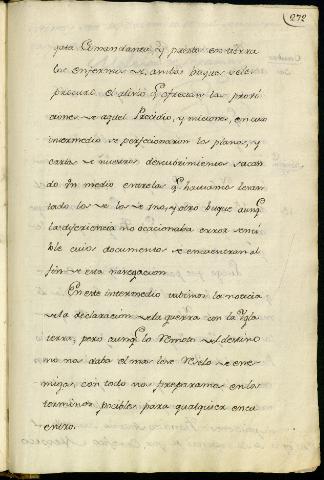 272
gata Comandanta, y puesto en tierra
los enfermos de ambos buques se les
procuró el alivio q ofrecian las provi
ciones de aquel Precidio, y miciones, en cuio
intermedio se perfecionaron los planos, y
cartas de nuestros descubrimientos sacan
do Un medio entre las q haviamos levan
tado los de los de Uno, y otro buque aunq
la diferiencia no ocacionaba error sensi
ble cuios documentos se encuentran al
fin de esta navegacion
En este intermedio tubimos la noticia
de la declaracion de la guerra con la Ygla
terra, pero aunq lo remoto del destino
no nos daba el mas leve recelo de ene
migos, con todo nos preparamos en los
terminos pocibles para qualquier encu
entro.